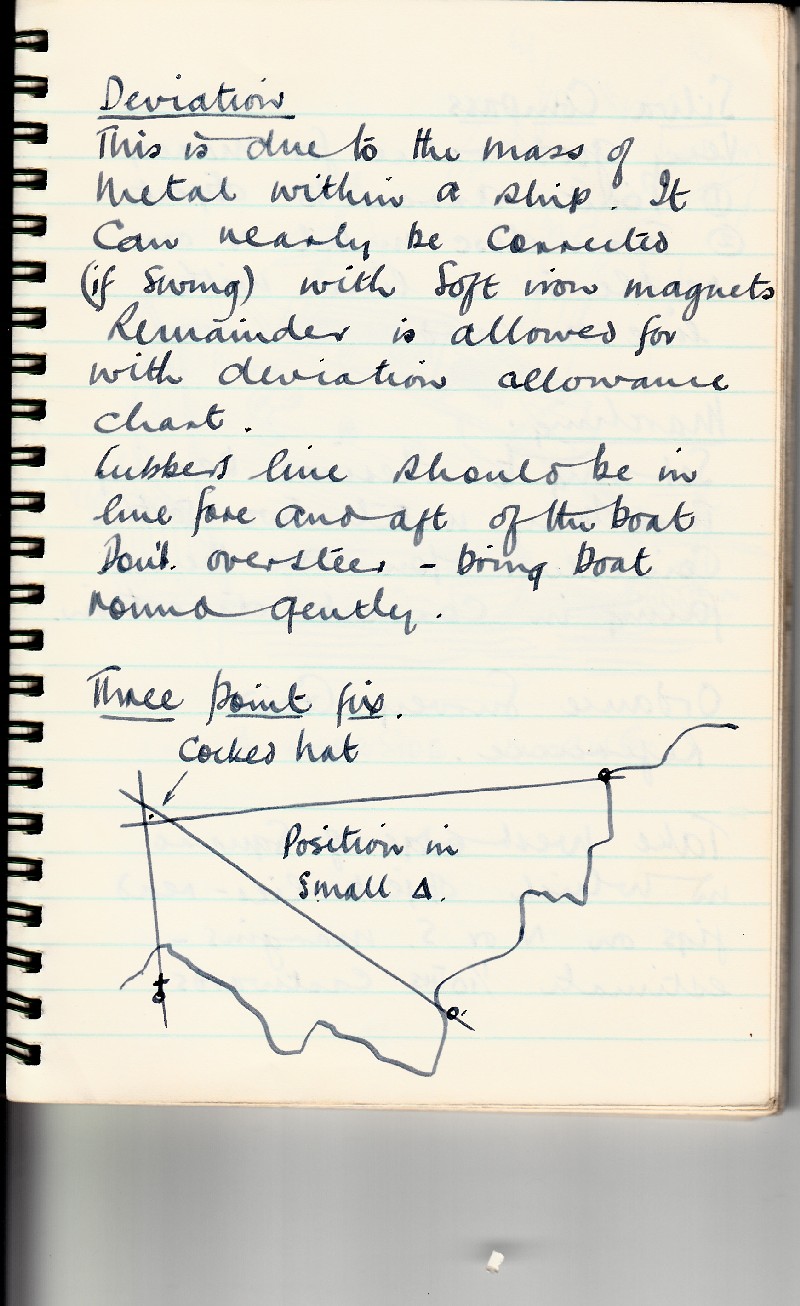 Deviation
This is due to the mass of
Metal within a ship. It
Can nearly be Corrected
(if Swing) with Soft iron magnets
Remainder is allowed for
with deviation allowance
chart.
Lubbers line should be in
line fore and aft of the boat
Don't oversteer - bring boat
round gently.
Three point fix.
Cocked hat
Position in
Small Δ.